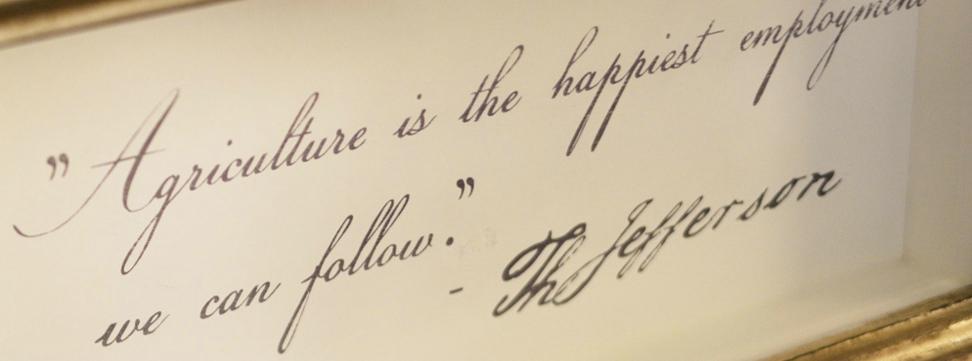 ”Agriculture is the happiest employment
we can follow.”
- Th Jefferson